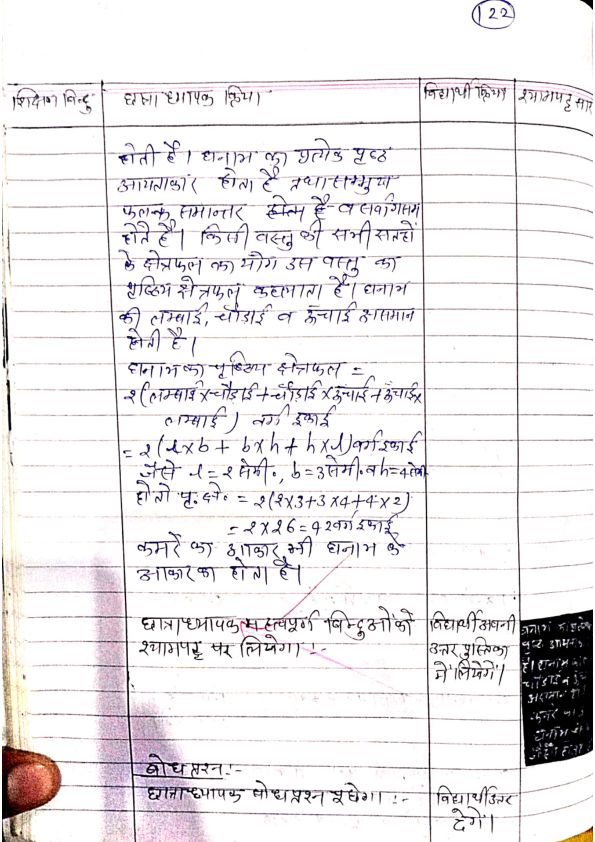 122
शिक्षण बिन्दु
छात्राध्यापक क्रिया
विद्यार्थी क्रिया
श्यामपट्ट सार
होती है। घनाभ का प्रत्येक पृष्ठ
आयताकार होता है तथा सम्मुख
फलक समान्तर होता है व सर्वांगसम
होते है। किसी वस्तु की सभी सतहों
के क्षेत्रफल का योग उस वस्तु का
पृष्ठिय क्षेत्रफल कहलाता है। घनाभ
की लम्बाई, चौड़ाई व ऊंचाई असमान
होती है।
घनाभ का पृष्ठिय क्षेत्रफल =
2(लम्बाई x चौड़ाई + चौड़ाई x ऊंचाई + ऊंचाई x
लम्बाई) वर्ग इकाई
= 2(l x b + b x h + h x l) वर्ग इकाई
जैसे l = 2 सेमी., b = 3 सेमी. व h = 4 सेमी
हो तो पृ. क्षे. = 2(2x3+3x4+4x2)
= 2 x 26 = 42 वर्ग इकाई
कमरे का आकार भी घनाभ के
आकार का होता है।
छात्राध्यापक महत्वपूर्ण बिन्दुओं को
श्यामपट्ट पर लिखेगा :-
विद्यार्थी अपनी
उत्तर पुस्तिका
में लिखेगें।
घनाभ का प्रत्येक
पृष्ठ
है। घनाभ की
बोध प्रश्न :-
छात्राध्यापक बोध प्रश्न पूछेगा :-
विद्यार्थी उत्तर
देगें।